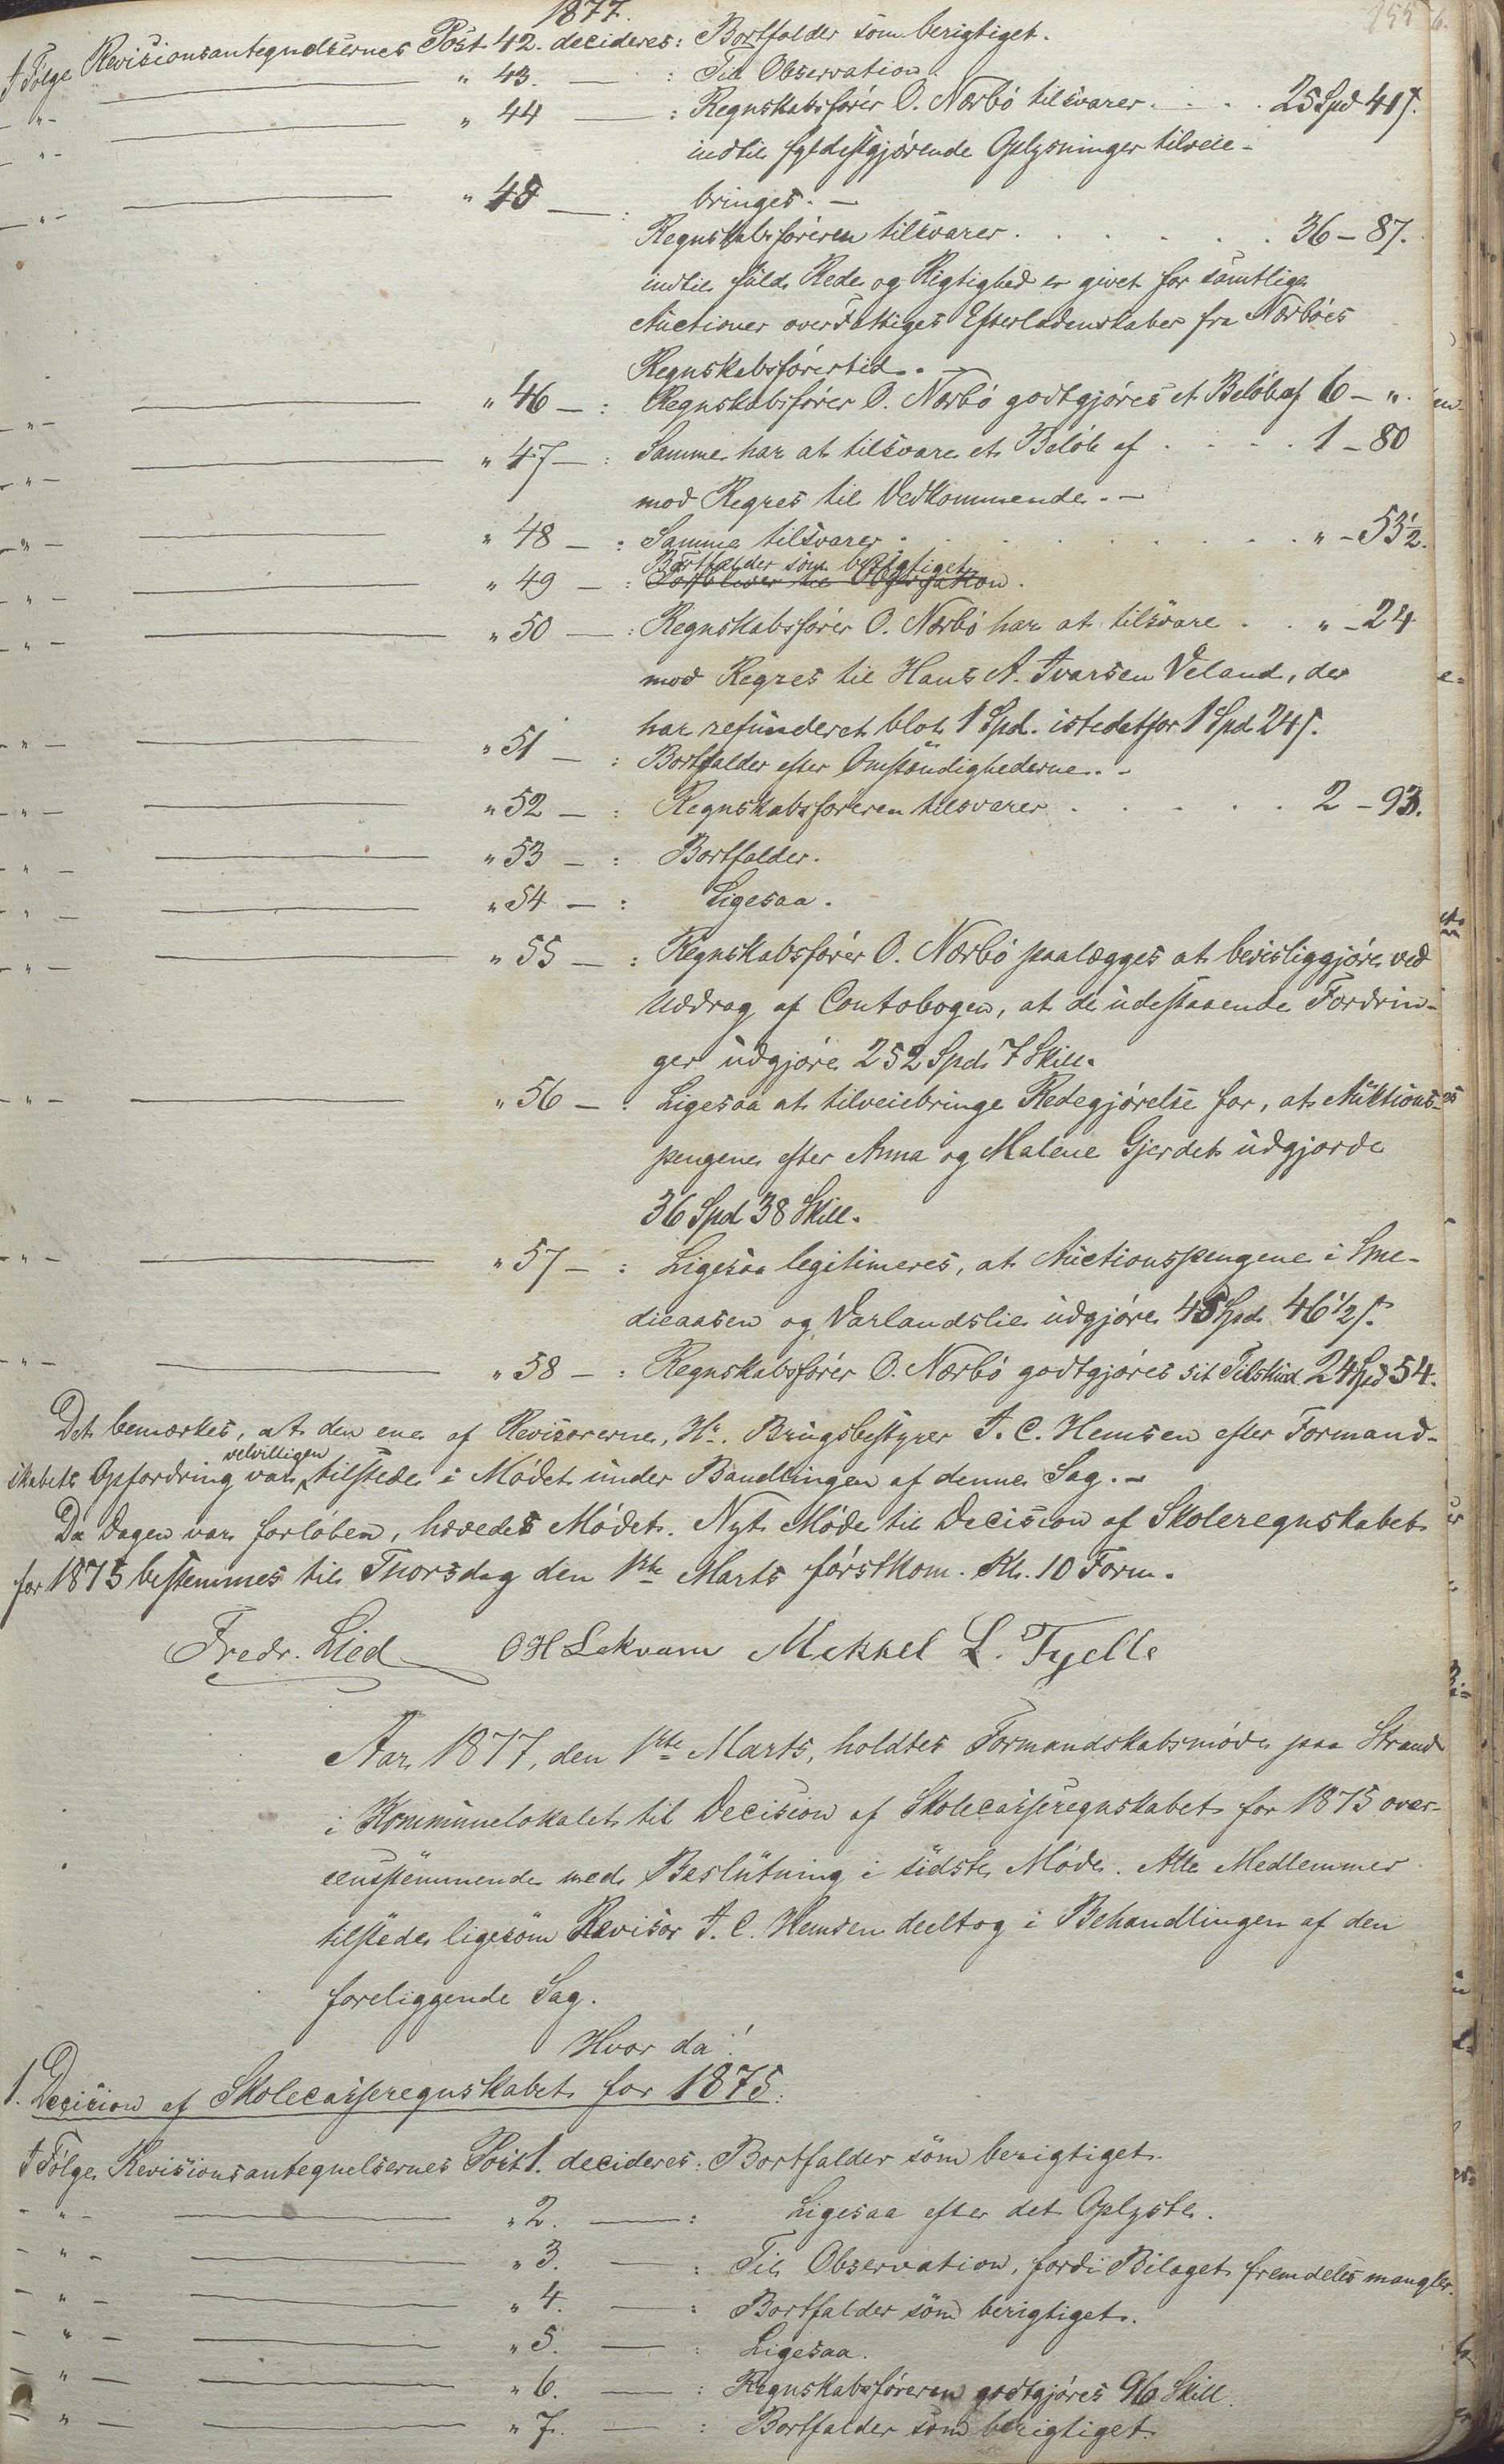 1877.
155 6.
I Følge Revisionsantegnelsernes Post 42. decideres: Bortfalder som berigtiget.
" 43. — : Til Observation.
" 44 — : Regnskabsfører O. Nærbø tilsvarer . . . . 25 Spd 41 ß.
indtil fyldestgjørende Oplysninger tilveie-
bringes. —
" 45 — : Regnskabsføreren tilsvarer . . . . . . 36 – 87.
indtil fuld Rede og Rigtighed er givet for samtlige
Auctioner over Fattiges Efterladenskaber fra Nærbøes
Regnskabsførertid. —
" 46 — : Regnskabsfører O. Nærbø godtgjøres et Beløb af 6 – ".
" 47 — : Samme har at tilsvare et Beløb af . . . . 1 – 80
mod Regres til Vedkommende. —
" 48 — : Samme tilsvarer . . . . . . . . . " – 53½.
" 49 — : Bortfalder som berigtiget.
" 50 — : Regnskabsfører O. Nærbø har at tilsvare . . " – 24
mod Regres til Hans A. Ivarsen Veland, der
har refunderet blot 1 Spd. istedetfor 1 Spd 24 ß.
" 51 — : Bortfalder efter Omstændighederne. –
" 52 — : Regnskabsføreren tilsvarer . . . . . 2 – 93.
" 53 — : Bortfalder.
" 54 — : Ligesaa.
" 55 — : Regnskabsfører O. Nærbø paalægges at bevisliggjøre ved
Uddrag af Contobogen, at de udestaaende Fordrin-
ger udgjøre 252 Spd 7 Skill.
" 56 — : Ligesaa at tilveiebringe Redegjørelse for, at Auktions-
pengene efter Anna og Malene Gjerdet udgjorde
36 Spd 38 Skill.
" 57 — : Ligesaa legitimeres, at Auctionspengene i Sme-
dieaasen og Varlandslie udgjøre 45 Spd 46½ ß.
" 58 — : Regnskabsfører O. Nærbø godtgjøres sit Tilskud 24 Spd 54.
Det bemærkes, at den ene af Revisorerne, Hr. Brugsbestyrer I. C. Hemsen efter Formand-
skabets Opfordring var velvilligen tilstede i Mødet under Bandlingen af denne Sag. –
Da Dagen var forløben, hævedes Mødet. Nyt Møde til Decision af Skoleregnskabet
for 1875 bestemmes til Thorsdag den 1ste Marts førstkom. Kl. 10 Form.
Fredr. Lied OH Lekvam Mekkel L. Tyelle
Aar 1877, den 1ste Marts, holdtes Formandskabsmøde paa Strand
i Kommunelokalet til Decision af Skolecasseregnskabet for 1875 over-
eensstemmende med Beslutning i sidste Møde. Alle Medlemmer
tilstede ligesom Revisor I. C. Hemsen deeltog i Behandlingen af den
foreliggende Sag.
Hvor da!
1. Decision af Skolecasseregnskabet for 1875.
I Følge Revisionsantegnelsernes Post 1. decideres: Bortfalder som berigtiget.
" 2. — : Ligesaa efter det Oplyste.
" 3. — : Til Observation, fordi Bilaget fremdeles mangler.
" 4. — : Bortfalder som berigtiget.
" 5. — : Ligesaa.
" 6. — : Regnskabsføreren godtgjøres 96 Skill.
" 7. — : Bortfalder som berigtiget.